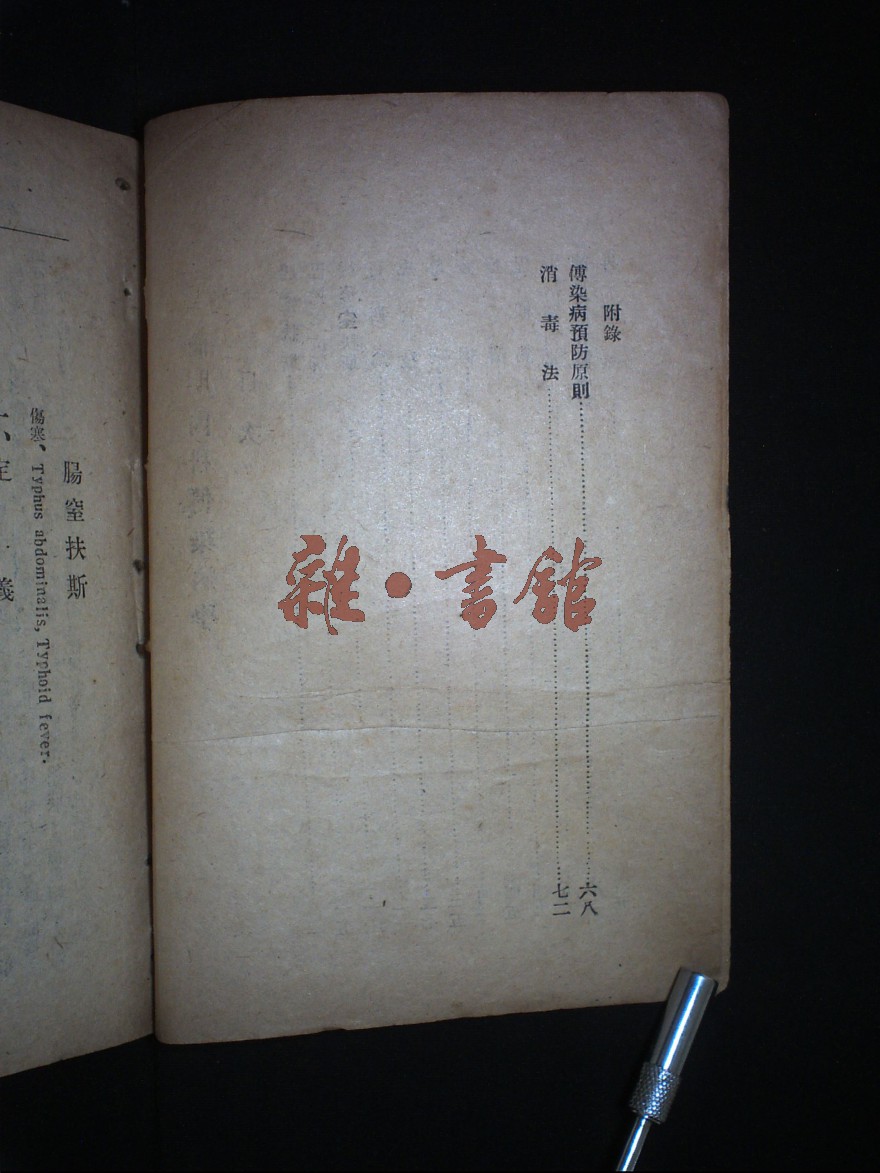 附錄
傳染病預防原則……六八
消毒法……七二
雜·書館
腸窒扶斯
傷寒、Typhus abdominalis, Typhoid fever.
義